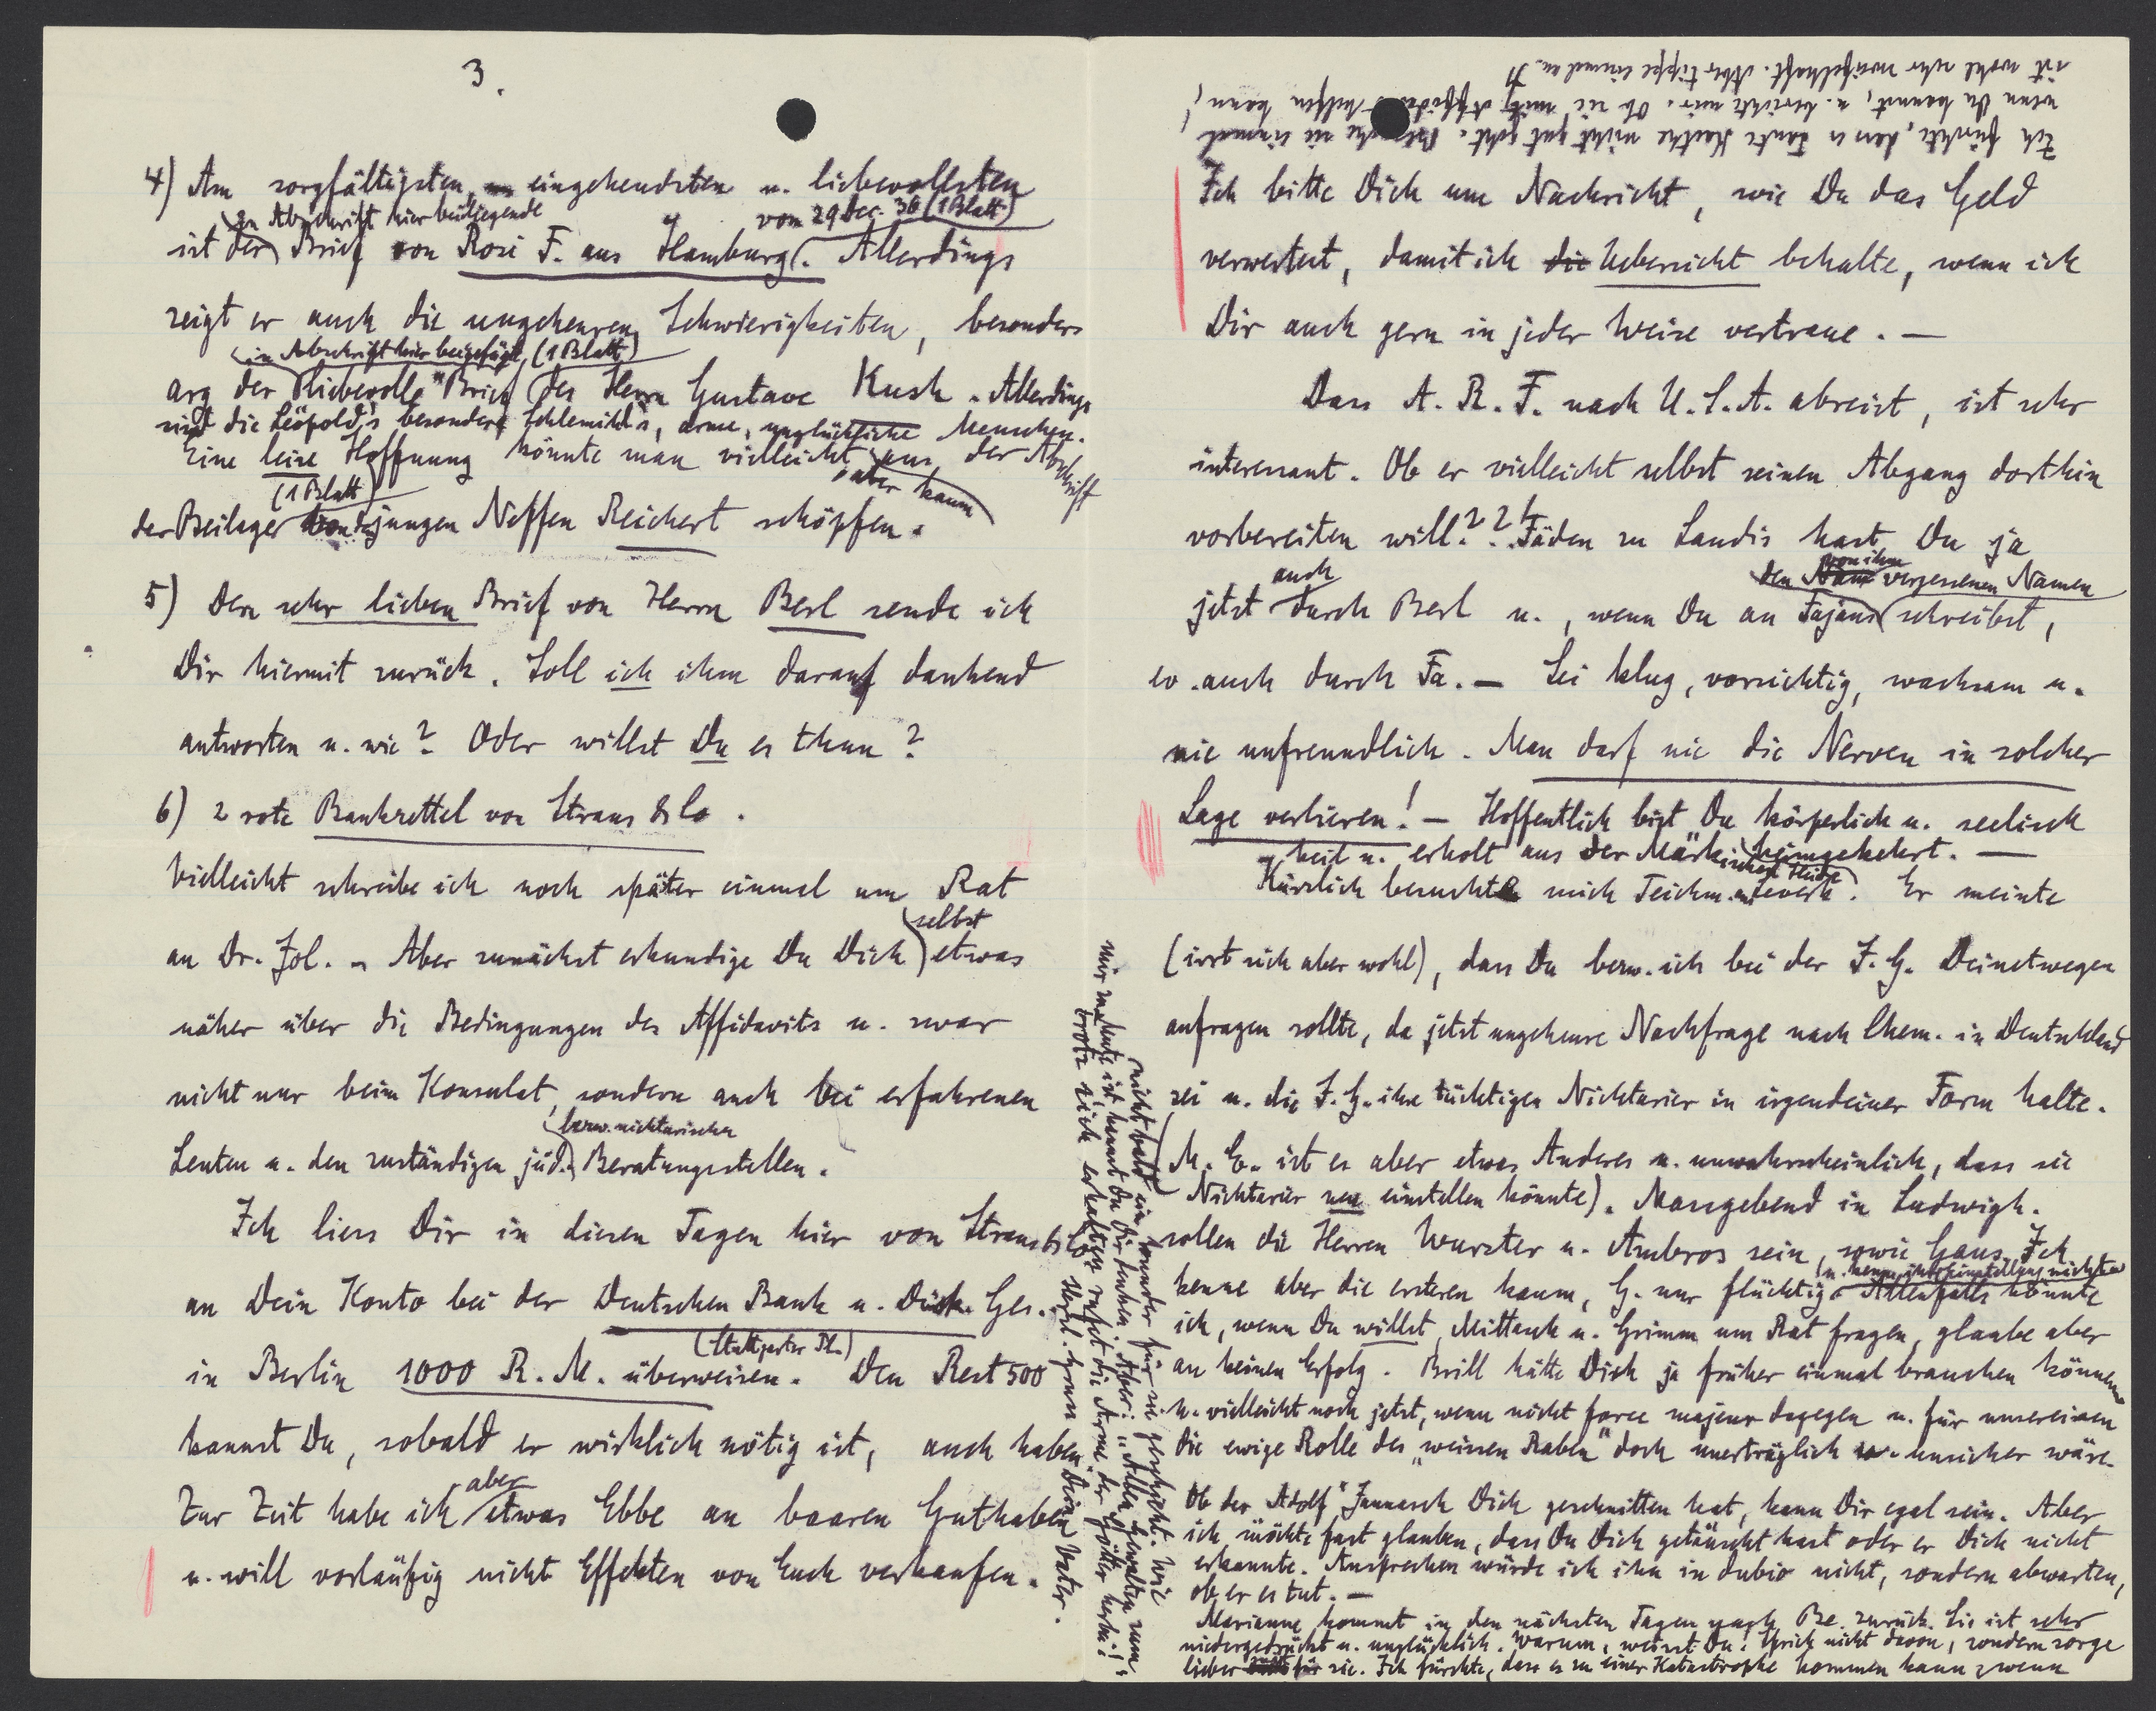 3.
4) Am sorgfältigsten, eingehendsten u. liebevollsten
in Abschrift hier beiliegende
vom 29 Dec. 36 (1 Blatt)
ist der Brief von Rosi F. aus Hamburg. Allerdings
zeigt er auch die ungeheuren Schwierigkeiten, besonders
in Abschrift hier beigefügte, (1 Blatt)
arg der "liebevolle" Brief des Herrn Gustave Kush. Allerdings
sind die Leopold's besonders Schlemihl's, arme, unglückliche Menschen.
Eine leise Hoffnung könnte man vielleicht aus der Abschrift
(1 Blatt)
aber kaum
der Beilage des jungen Neffen Reichert schöpfen.
5) Den sehr lieben Brief von Herrn Berl sende ich
Dir hiermit zurück. Soll ich ihm darauf dankend
antworten u. wie? Oder willst Du es thun?
6) 2 rote Bankzettel von Straus & Co.
Vielleicht schreibe ich noch später einmal um Rat
selbst
an Dr. Jol. – Aber zunächst erkundige Du Dich etwas
näher über die Bedingungen des Affidavits u. zwar
nicht nur beim Konsulat, sondern auch bei erfahrenen
bezw. nichtarischen
Leuten u. den zuständigen jüd. Beratungsstellen.
Ich liess Dir in diesen Tagen hier von Straus & Co
an Dein Konto bei der Deutschen Bank u. Disk. Ges.
(Stuttgarter Pl.)
in Berlin 1000 R. M. überweisen. Den Rest 500
kannst Du, sobald er wirklich nötig ist, auch haben.
aber
Zur Zeit habe ich etwas Ebbe an baaren Guthaben
u. will vorläufig nicht Effekten von Euch verkaufen.
Ich bitte Dich um Nachricht, wie Du das Geld
verwertest, damit ich die Uebersicht behalte, wenn ich
Dir auch gern in jeder Weise vertraue. —
Dass A. R. F. nach U.S.A. abreist, ist sehr
interessant. Ob er vielleicht selbst seinen Abgang dorthin
vorbereiten will??! Fäden zu Landis hast Du ja
auch
von ihm
den vergessenen Namen
jetzt durch Berl u., wenn Du an Fajans schreibst,
ev. auch durch Fa. — Sei klug, vorsichtig, wachsam u.
nie unfreundlich. Man darf nie die Nerven in solcher
Lage verlieren! — Hoffentlich bist Du körperlich u. seelisch
heil u. erholt aus der Märkischen Heide heimgekehrt. —
Kürzlich besuchte mich Teichm. Er meinte
(irrt sich aber wohl), dass Du bezw. ich bei der I. G. Deinetwegen
anfragen sollte, da jetzt ungeheure Nachfrage nach Chem. in Deutschland
sei u. die I. G. ihre tüchtigen Nichtarier in irgendeiner Form halte.
(M. E. ist es aber etwas Anderes u. unwahrscheinlich, dass sie
Nichtarier neu einstellen könnte). Massgebend in Ludwigh.
sollen die Herren Wurster u. Ambros sein, sowie Gaus. Ich
(u. kenne ihre Einstellung nicht)
kenne aber die ersteren kaum, G. nur flüchtig. Allenfalls könnte
ich, wenn Du willst, Mittasch u. Grimm um Rat fragen, glaube aber
an keinen Erfolg. Brill hätte Dich ja früher einmal brauchen können
u. vielleicht noch jetzt, wenn nicht force majeur dagegen u. für unsereinen
die ewige Rolle des "weissen Raben" doch unerträglich u. unsicher wäre.
Ob der "Adolf" Jannasch Dich geschnitten hat, kann Dir egal sein. Aber
ich möchte fast glauben, dass Du Dich getäuscht hast oder er Dich nicht
erkannte. Ansprechen würde ich ihn in dubio nicht, sondern abwarten,
ob er es tut. —
Marianne kommt in den nächsten Tagen nach Be. zurück. Sie ist sehr
niedergedrückt u. unglücklich. Warum, weisst Du. Sprich nicht davon, sondern sorge
lieber für sie. Ich fürchte, dass es zu einer Katastrophe kommen kann, wenn
nicht bald ein Wunder für sie geschieht. Wie
mir zu Mute ist, kannst Du Dir denken. Aber: "Allen Gewalten zum
Trotz sich erhalten rufet die Arme der Götter herbei!"
Herzl. Gruss Dein Vater.
Ich fürchte, dass es Tante Käthe nicht gut geht. Besuche sie einmal,
wenn Du kannst, u. berichte mir. Ob sie mit Affidavit helfen kann,
ist wohl sehr zweifelhaft. Aber tippe einmal an.